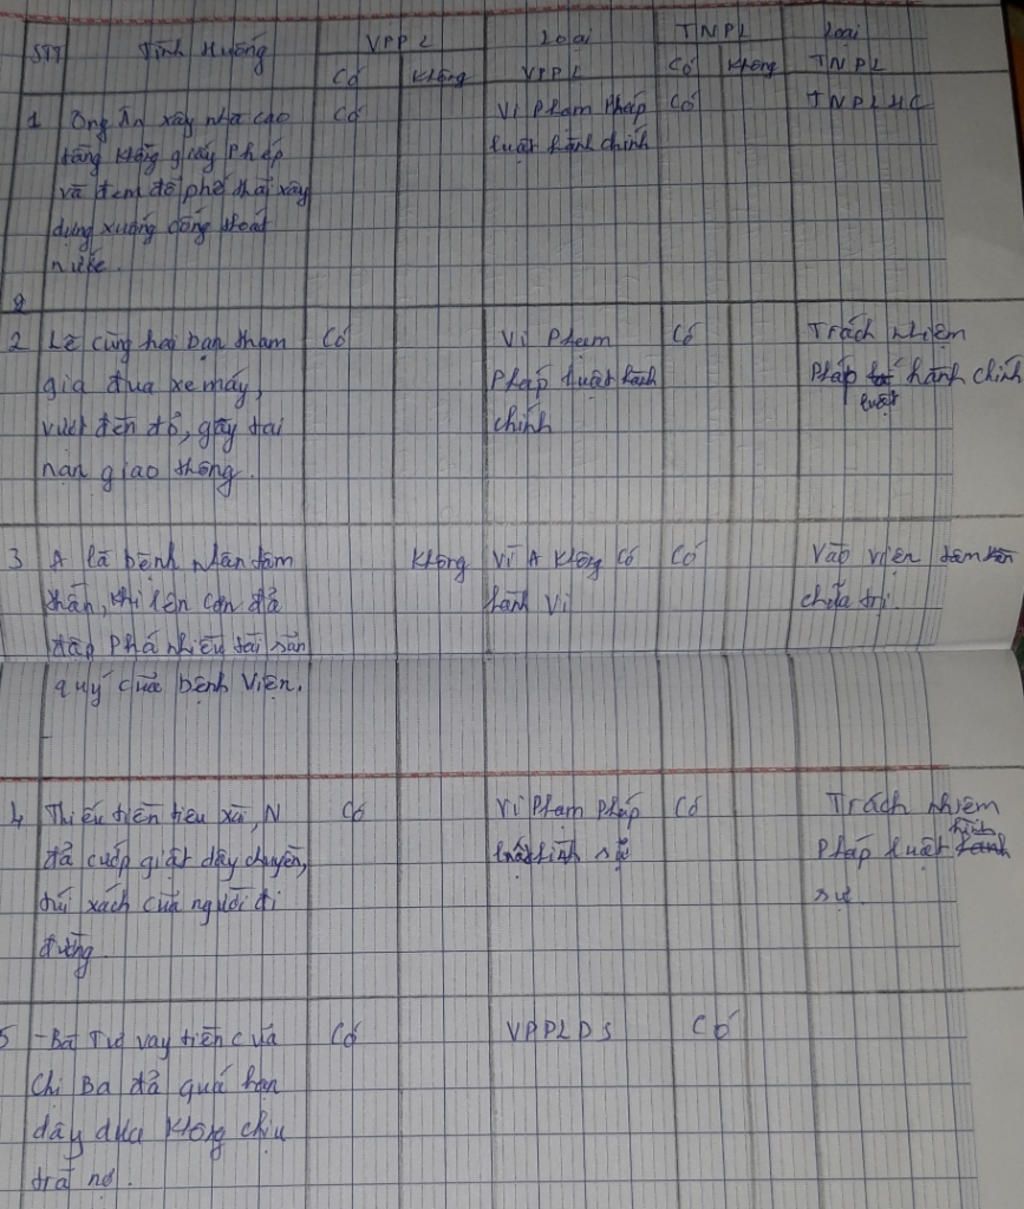 STT Tình Huống VPPL Loại TNPL Loại
Có Không VPPL Có Không TNPL
1 Ông Ân xây nhà cao Có Vi Phạm Pháp Có TNPLHC
tầng không giấy phép luật hành chính
và đem đổ phế thải xây
dựng xuống cống thoát
nước.
2 Lê cùng hai bạn tham Có Vi Phạm Có Trách nhiệm
gia đua xe máy, Pháp luật hành Pháp luật hành chính
vượt đèn đỏ, gây tai chính
nạn giao thông.
3 A là bệnh nhân tâm Không Vì A không có Có Vào viện tâm thần
thần, khi lên cơn đã hành vi chữa trị.
đập phá nhiều tài sản
quý của bệnh viện.
4 Thiếu tiền tiêu xài, N Có Vi Phạm Pháp Có Trách nhiệm
đã cướp giật dây chuyền, luật hình sự Pháp luật hình
túi xách của người đi sự
đường.
5 - Bà Tư vay tiền của Có VPPLDS Có
Chị Ba đã quá hạn
dây dưa không chịu
trả nợ.